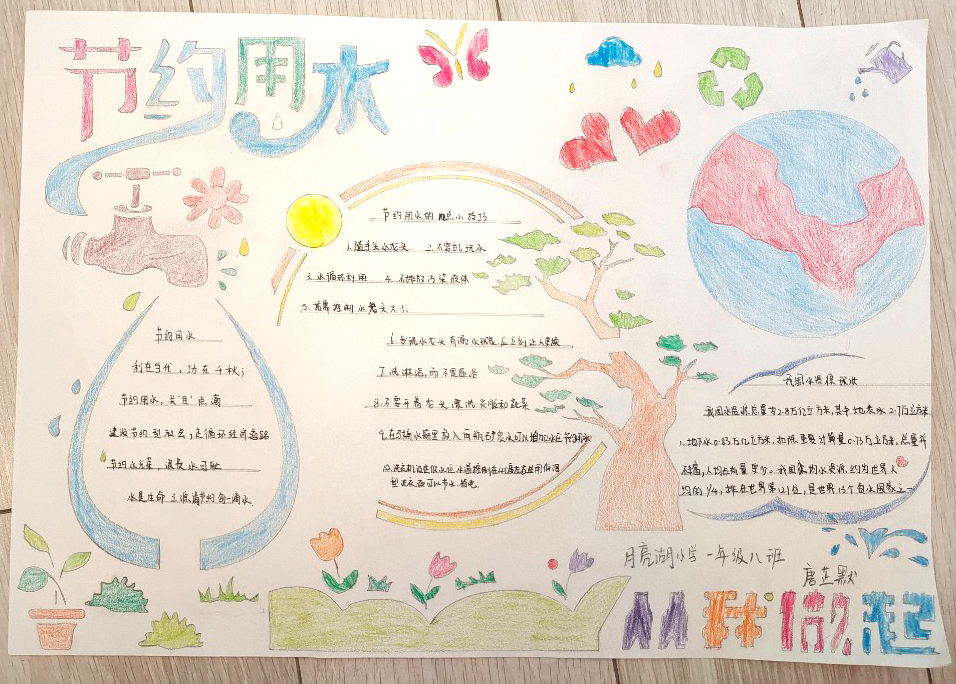 节约用水
节约用水
利在当代,功在千秋;
节约用水,关"住"点滴
建设节约型社会,走循环经济道路
节约水光荣,浪费水可耻
水是生命之源,请节约每一滴水
节约用水的 小技巧
1.随手关水龙头 2.不要乱玩水
3.水循环利用 4.不排放污染液体
5.首要控制水龙头大小
6.发现水龙头有漏水现象,应立刻让人更换
7.洗淋浴,而不是盆浴
8.不要开着龙头漂洗衣服和蔬菜
9.在马桶水箱里放入
10.洗衣机
可以节水、省电
我国水资源现状
我国水资源总量为2.8万亿立方米,其中地表水2.7万立方米
1.地下水0.83万亿立方米,扣除重复计算量0.73万立方米,总量并
不丰富,人均占有量更少。我国 水资源,约为世界人
均的1/4,排在世界第121位,是世界13个贫水国家之一
月亮湖小学一年级八班
唐芷默
从我做起